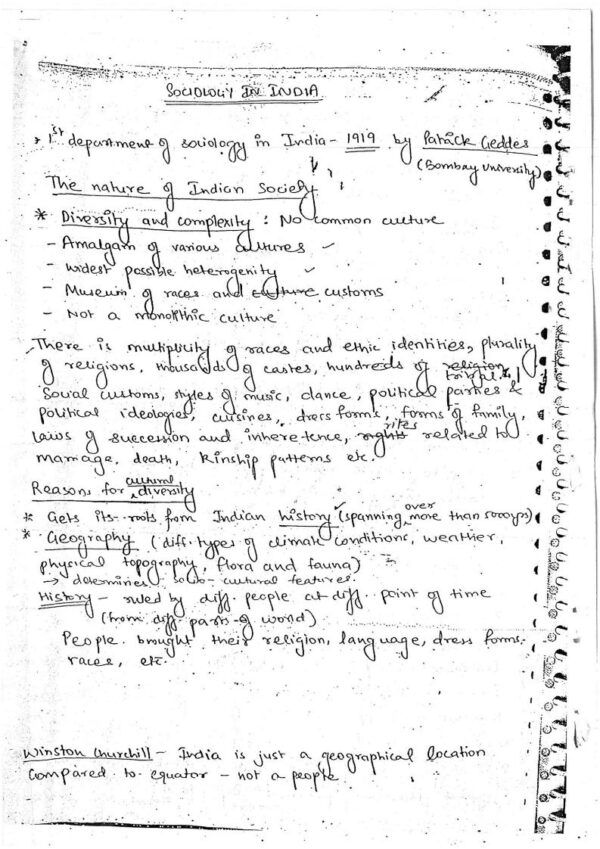 SOCIOLOGY IN INDIA
1st department of sociology in India - 1919 by Patrick Geddes
(Bombay University)
The nature of Indian Society
* Diversity and complexity : No common culture
- Amalgam of various cultures
- widest possible heterogenity
- Museum of races and culture customs
- Not a monolithic culture
There is multiplicity of races and ethic identities, plurality
of religions, thousands of castes, hundreds of religion tribal,
Social customs, styles of music, dance, political parties &
political ideologies, cuisines, dress forms, forms of family,
laws of succession and inheretence, rights rites related to
marriage, death, kinship patterns etc.
Reasons for cultural diversity
* Gets its roots from Indian history (spanning over more than 5000yrs)
* Geography (diff. types of climate conditions, weather,
physical topography, flora and fauna)
→ determines socio-cultural features.
History - ruled by diff. people at diff. point of time
(from diff. parts of world)
People brought their religion, language, dress forms,
races, etc.
Winston Churchill - India is just a geographical location
Compared to equator - not a people